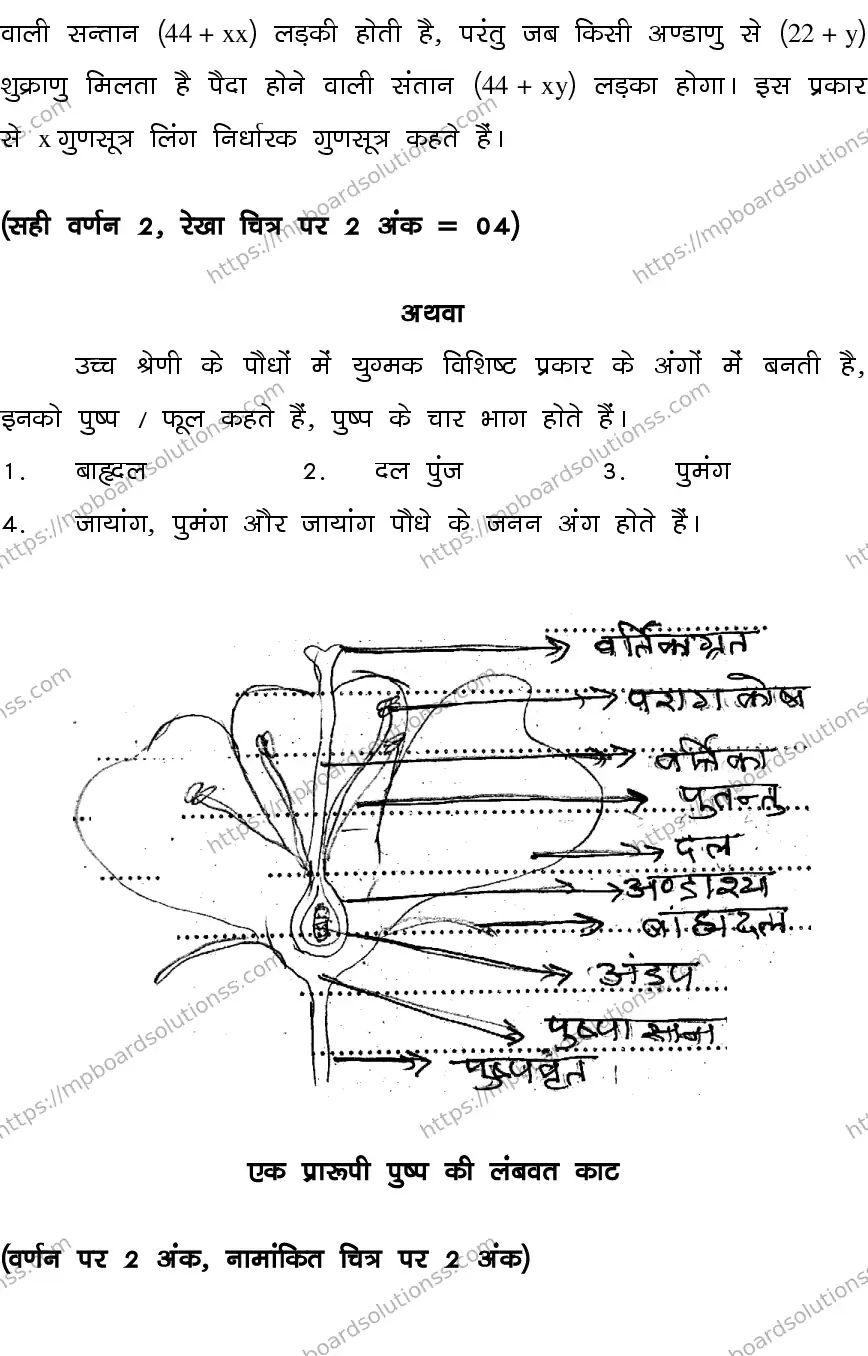 वाली सन्तान (44 + xx) लड़की होती है, परंतु जब किसी अण्डाणु से (22 + y)
शुक्राणु मिलता है पैदा होने वाली संतान (44 + xy) लड़का होगा। इस प्रकार
से x गुणसूत्र लिंग निर्धारक गुणसूत्र कहते हैं।
(सही वर्णन 2, रेखा चित्र पर 2 अंक = 04)
अथवा
उच्च श्रेणी के पौधों में युग्मक विशिष्ट प्रकार के अंगों में बनती है,
इनको पुष्प / फूल कहते हैं, पुष्प के चार भाग होते हैं।
1. बाह्दल 2. दल पुंज 3. पुमंग
4. जायांग, पुमंग और जायांग पौधे के जनन अंग होते हैं।
वर्तिकाग्रत
पराग कोष
वर्त्तिका
पुतन्तु
दल
अण्डाश्य
बांह्यदल
अंडप
पुष्पासन
पुष्पवृंत ।
एक प्रारूपी पुष्प की लंबवत काट
(वर्णन पर 2 अंक, नामांकित चित्र पर 2 अंक)
https://mpboardsolutionss.com